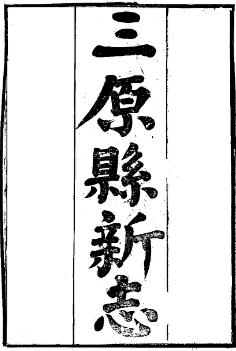 三原縣新志